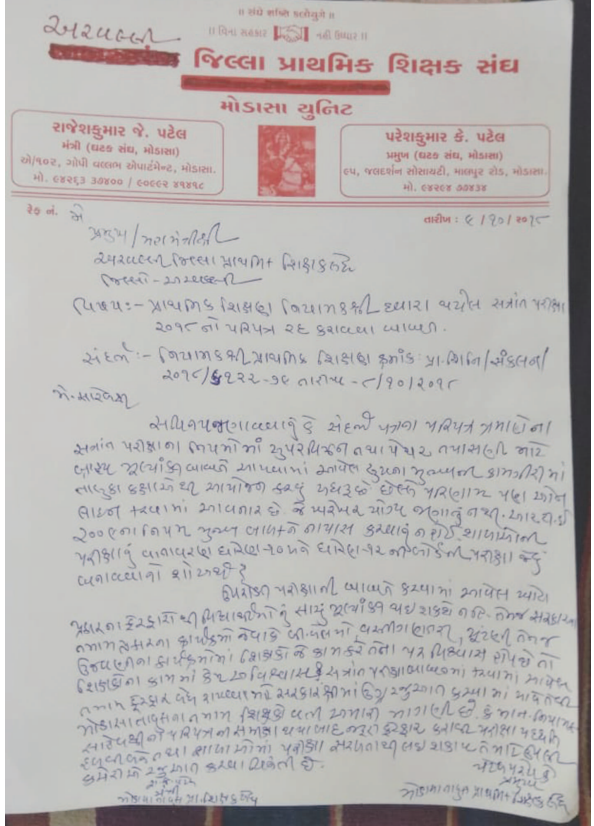 || સંઘે શક્તિ કલૌયુગે ||
|| વિના સહકાર નહીં ઉધ્ધાર ||
અરવલ્લી
જિલ્લા પ્રાથમિક શિક્ષક સંઘ
મોડાસા યુનિટ
રાજેશકુમાર જે. પટેલ
મંત્રી (ઘટક સંઘ, મોડાસા)
એ/૧૦૨, ગોપી વલ્લભ એપાર્ટમેન્ટ, મોડાસા.
મો. ૯૪૨૬૩ ૩૭૪૦૦ / ૯૦૯૯૨ ૪૧૪૧૮
પરેશકુમાર કે. પટેલ
પ્રમુખ (ઘટક સંઘ, મોડાસા)
૯૫, જલદર્શન સોસાયટી, માલપુર રોડ, મોડાસા.
મો. ૯૪૨૯૪ ૭૭૪૩૪
રેફ નં.
તારીખ : ૯/૧૦/૨૦૧૮
પ્રમુખ/મહામંત્રીશ્રી
અરવલ્લી જિલ્લા પ્રાથમિક શિક્ષક સંઘ
જિલ્લો - અરવલ્લી
વિષય :- પ્રાથમિક શિક્ષણ નિયામકશ્રી દ્વારા થયેલ સત્રાંત પરીક્ષા
૨૦૧૮ નો પરિપત્ર રદ કરાવવા બાબત.
સંદર્ભ :- નિયામકશ્રી પ્રાથમિક શિક્ષણ ક્રમાંક: પ્રા.શિ.નિ/સંકલન/
૨૦૧૮/ તારીખ - ૮/૧૦/૨૦૧૮
સવિનય જણાવવાનું કે સંદર્ભ પત્રના પરિપત્ર પ્રમાણેના
સત્રાંત પરીક્ષાના નિયમોમાં સુપરવિઝન તથા પેપર તપાસણી માટે
બાહ્ય મૂલ્યાંકન બાબતે આપવામાં આવેલ
તાલુકા કક્ષાએથી આયોજન કરવું પરિણામ પણ ઓન
લાઇન કરવામાં આવનાર છે. જે યોગ્ય જણાતું નથી. આર.ટી.ઇ
૨૦૦૯ના નિયમ મુજબ બાળકને નાપાસ કરવાનું ન હોઈ શાળાઓની
પરીક્ષાનું વાતાવરણ ધોરણ-૧૦ અને ધોરણ-૧૨ ની બોર્ડની પરીક્ષા જેવું
બનાવવાનો શો અર્થ?
પરીક્ષાની બાબતે કરવામાં આવેલ ખોટા
પ્રકારના ફેરફારોથી વિદ્યાર્થીઓનું સાચું મૂલ્યાંકન થઇ શકશે નહિ. તેમજ સરકારના
તમામ પ્રકારના કાર્યક્રમો જેવાકે વસ્તીગણતરી, ચૂંટણી તેમજ
ઉજવણીના કાર્યક્રમોમાં શિક્ષકો જે કામ કરે તેના પર વિશ્વાસ તો
શિક્ષકોના કામમાં કેમ અવિશ્વાસ? સત્રાંત પરીક્ષા બાબતમાં કરવામાં આવેલ
તમામ ફેરફાર બંધ રાખવા માટે સરકારશ્રીમાં ઉગ્ર રજૂઆત કરવામાં આવે તેવી
મોડાસા તાલુકાના તમામ શિક્ષકો વતી અમારી માગણી છે. કે માન. નિયામક
પરિપત્રની સમીક્ષા થયા બાદ જરૂરી ફેરફાર કરાવી પરીક્ષા પધ્ધતિ
તથા શાળાઓમાં પરીક્ષા સરળતાથી લઇ શકાય તે માટે
રજૂઆત કરવા વિનંતી છે.
પ્રમુખ
મંત્રી
મોડાસા તાલુકા પ્રા.શિક્ષક સંઘ
મોડાસા તાલુકા પ્રાથમિક શિક્ષક સંઘ